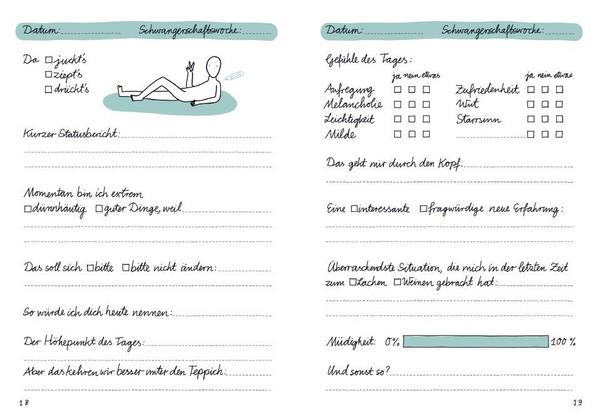 Datum: Schwangerschaftswoche:
Da ☐ juckt's
☐ ziept's
☐ drückt's
Kurzer Statusbericht:
Momentan bin ich extrem
☐ dünnhäutig ☐ guter Dinge, weil
Das soll sich ☐ bitte ☐ bitte nicht ändern:
So würde ich dich heute nennen:
Der Höhepunkt des Tages:
Aber das kehren wir besser unter den Teppich:
18
Datum: Schwangerschaftswoche:
Gefühle des Tages:
ja nein etwas ja nein etwas
Aufregung ☐ ☐ ☐ Zufriedenheit ☐ ☐ ☐
Melancholie ☐ ☐ ☐ Wut ☐ ☐ ☐
Leichtigkeit ☐ ☐ ☐ Starrsinn ☐ ☐ ☐
Milde ☐ ☐ ☐ ☐ ☐ ☐
Das geht mir durch den Kopf:
Eine ☐ interessante ☐ fragwürdige neue Erfahrung:
Überraschendste Situation, die mich in der letzten Zeit
zum ☐ Lachen ☐ Weinen gebracht hat:
Müdigkeit: 0% 100%
Und sonst so?
19